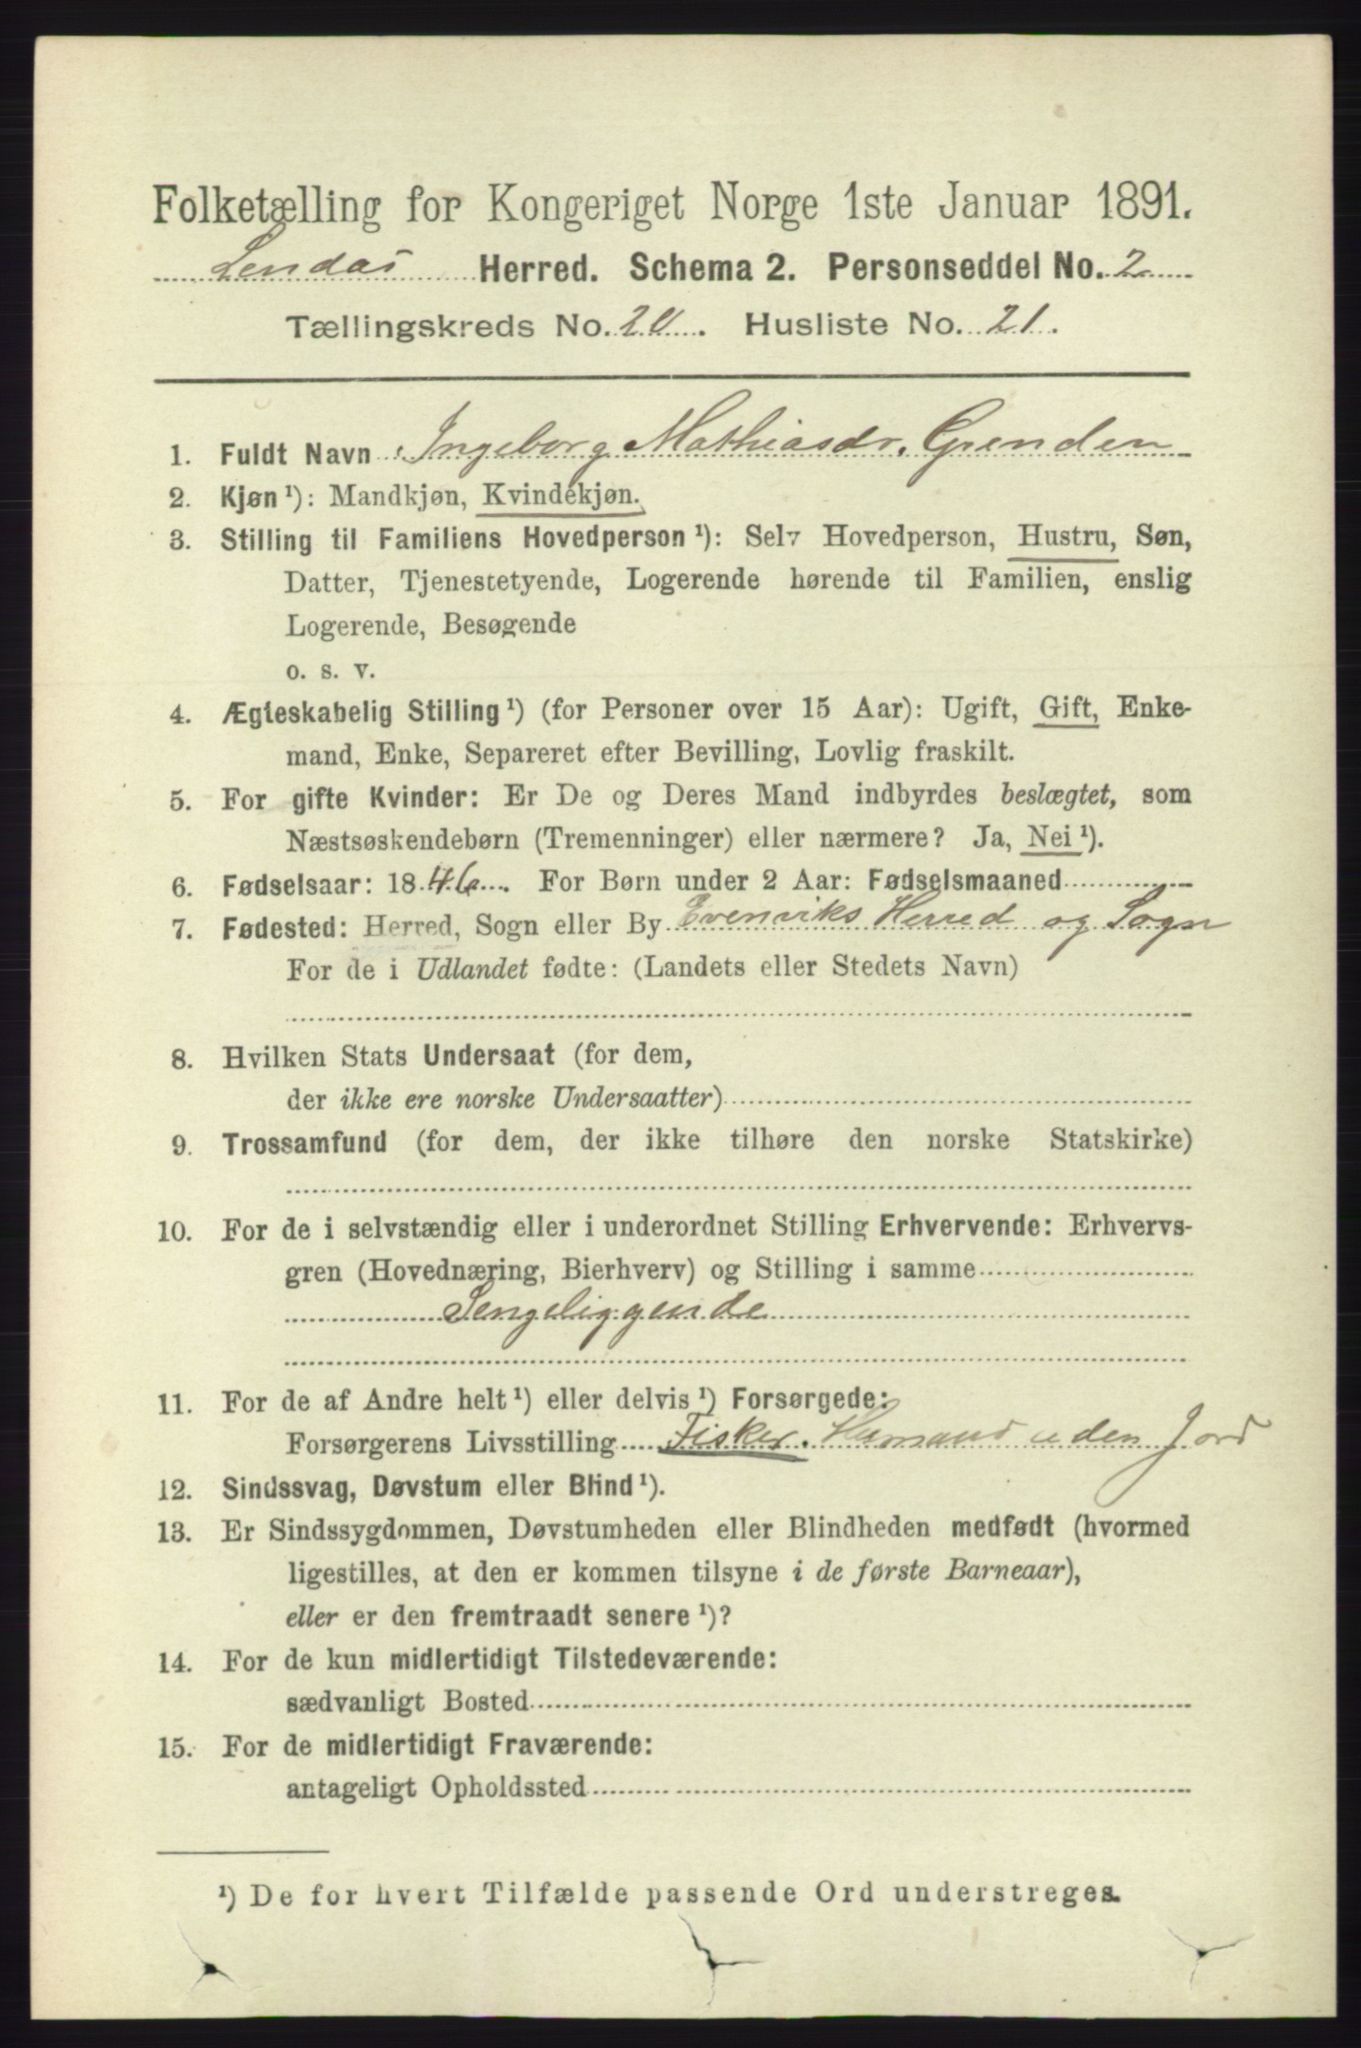 Folketælling for Kongeriget Norge 1ste Januar 1891.
Lendås Herred. Schema 2. Personseddel No. 2
Tællingskreds No. 20. Husliste No. 21.
1. Fuldt Navn Ingeborg Mathiasdr. Grenden
2. Kjøn¹): Mandkjøn, Kvindekjøn.
3. Stilling til Familiens Hovedperson¹): Selv Hovedperson, Hustru, Søn,
Datter, Tjenestetyende, Logerende hørende til Familien, enslig
Logerende, Besøgende
o. s. v.
4. Ægteskabelig Stilling¹) (for Personer over 15 Aar): Ugift, Gift, Enke-
mand, Enke, Separeret efter Bevilling, Lovlig fraskilt.
5. For gifte Kvinder: Er De og Deres Mand indbyrdes beslægtet, som
Næstsøskendebørn (Tremenninger) eller nærmere? Ja, Nei¹).
6. Fødselsaar: 1846. For Børn under 2 Aar: Fødselsmaaned
7. Fødested: Herred, Sogn eller By Evenviks Herred og Sogn
For de i Udlandet fødte: (Landets eller Stedets Navn)
8. Hvilken Stats Undersaat (for dem,
der ikke ere norske Undersaatter)
9. Trossamfund (for dem, der ikke tilhøre den norske Statskirke)
10. For de i selvstændig eller i underordnet Stilling Erhvervende: Erhvervs-
gren (Hovednæring, Bierhverv) og Stilling i samme
Sengeliggende
11. For de af Andre helt¹) eller delvis¹) Forsørgede:
Forsørgerens Livsstilling Fisker. Husmand uden Jord
12. Sindssvag, Døvstum eller Blind¹).
13. Er Sindssygdommen, Døvstumheden eller Blindheden medfødt (hvormed
ligestilles, at den er kommen tilsyne i de første Barneaar),
eller er den fremtraadt senere¹)?
14. For de kun midlertidigt Tilstedeværende:
sædvanligt Bosted
15. For de midlertidigt Fraværende:
antageligt Opholdssted
¹) De for hvert Tilfælde passende Ord understreges.